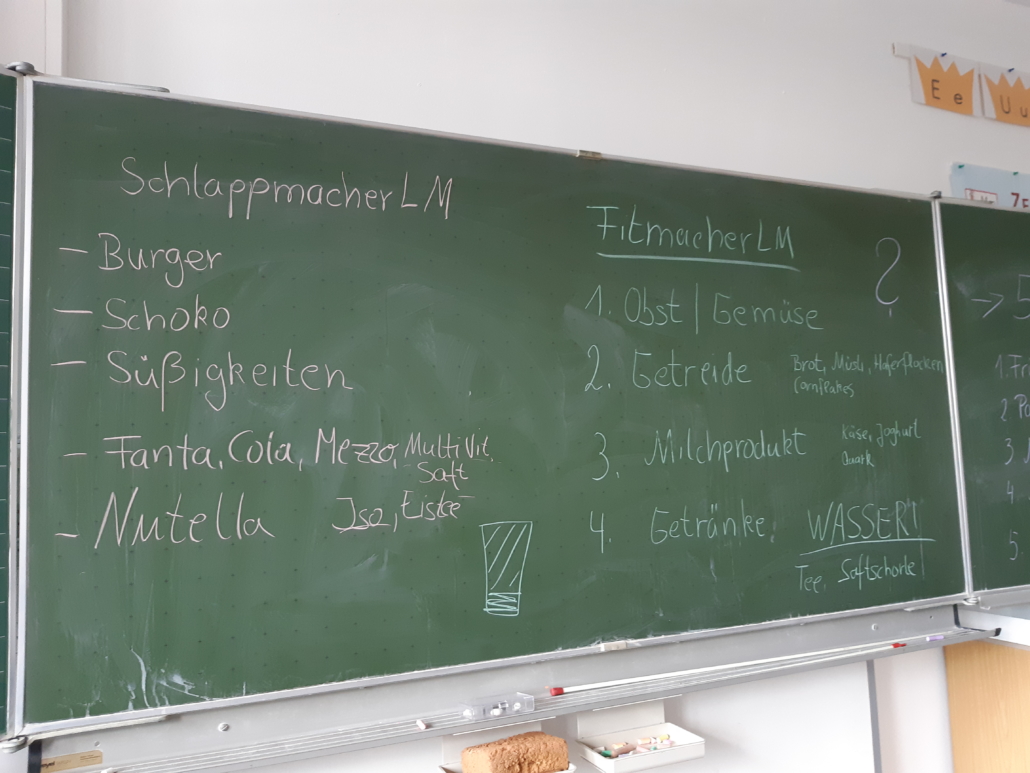 SchlappmacherLM
– Burger
– Schoko
– Süßigkeiten
– Fanta, Cola, Mezzo, MultiVit.
Saft
Iso, Eistee
– Nutella
FitmacherLM
?
1. Obst | Gemüse
2. Getreide
Brot, Müsli, Haferflocken
Cornflakes
3. Milchprodukt
Käse, Joghurt
Quark
4. Getränke: WASSER!
Tee, Saftschorle
→ 5
1. Fr
2. Pa
3.
4.
5.
E e
U u